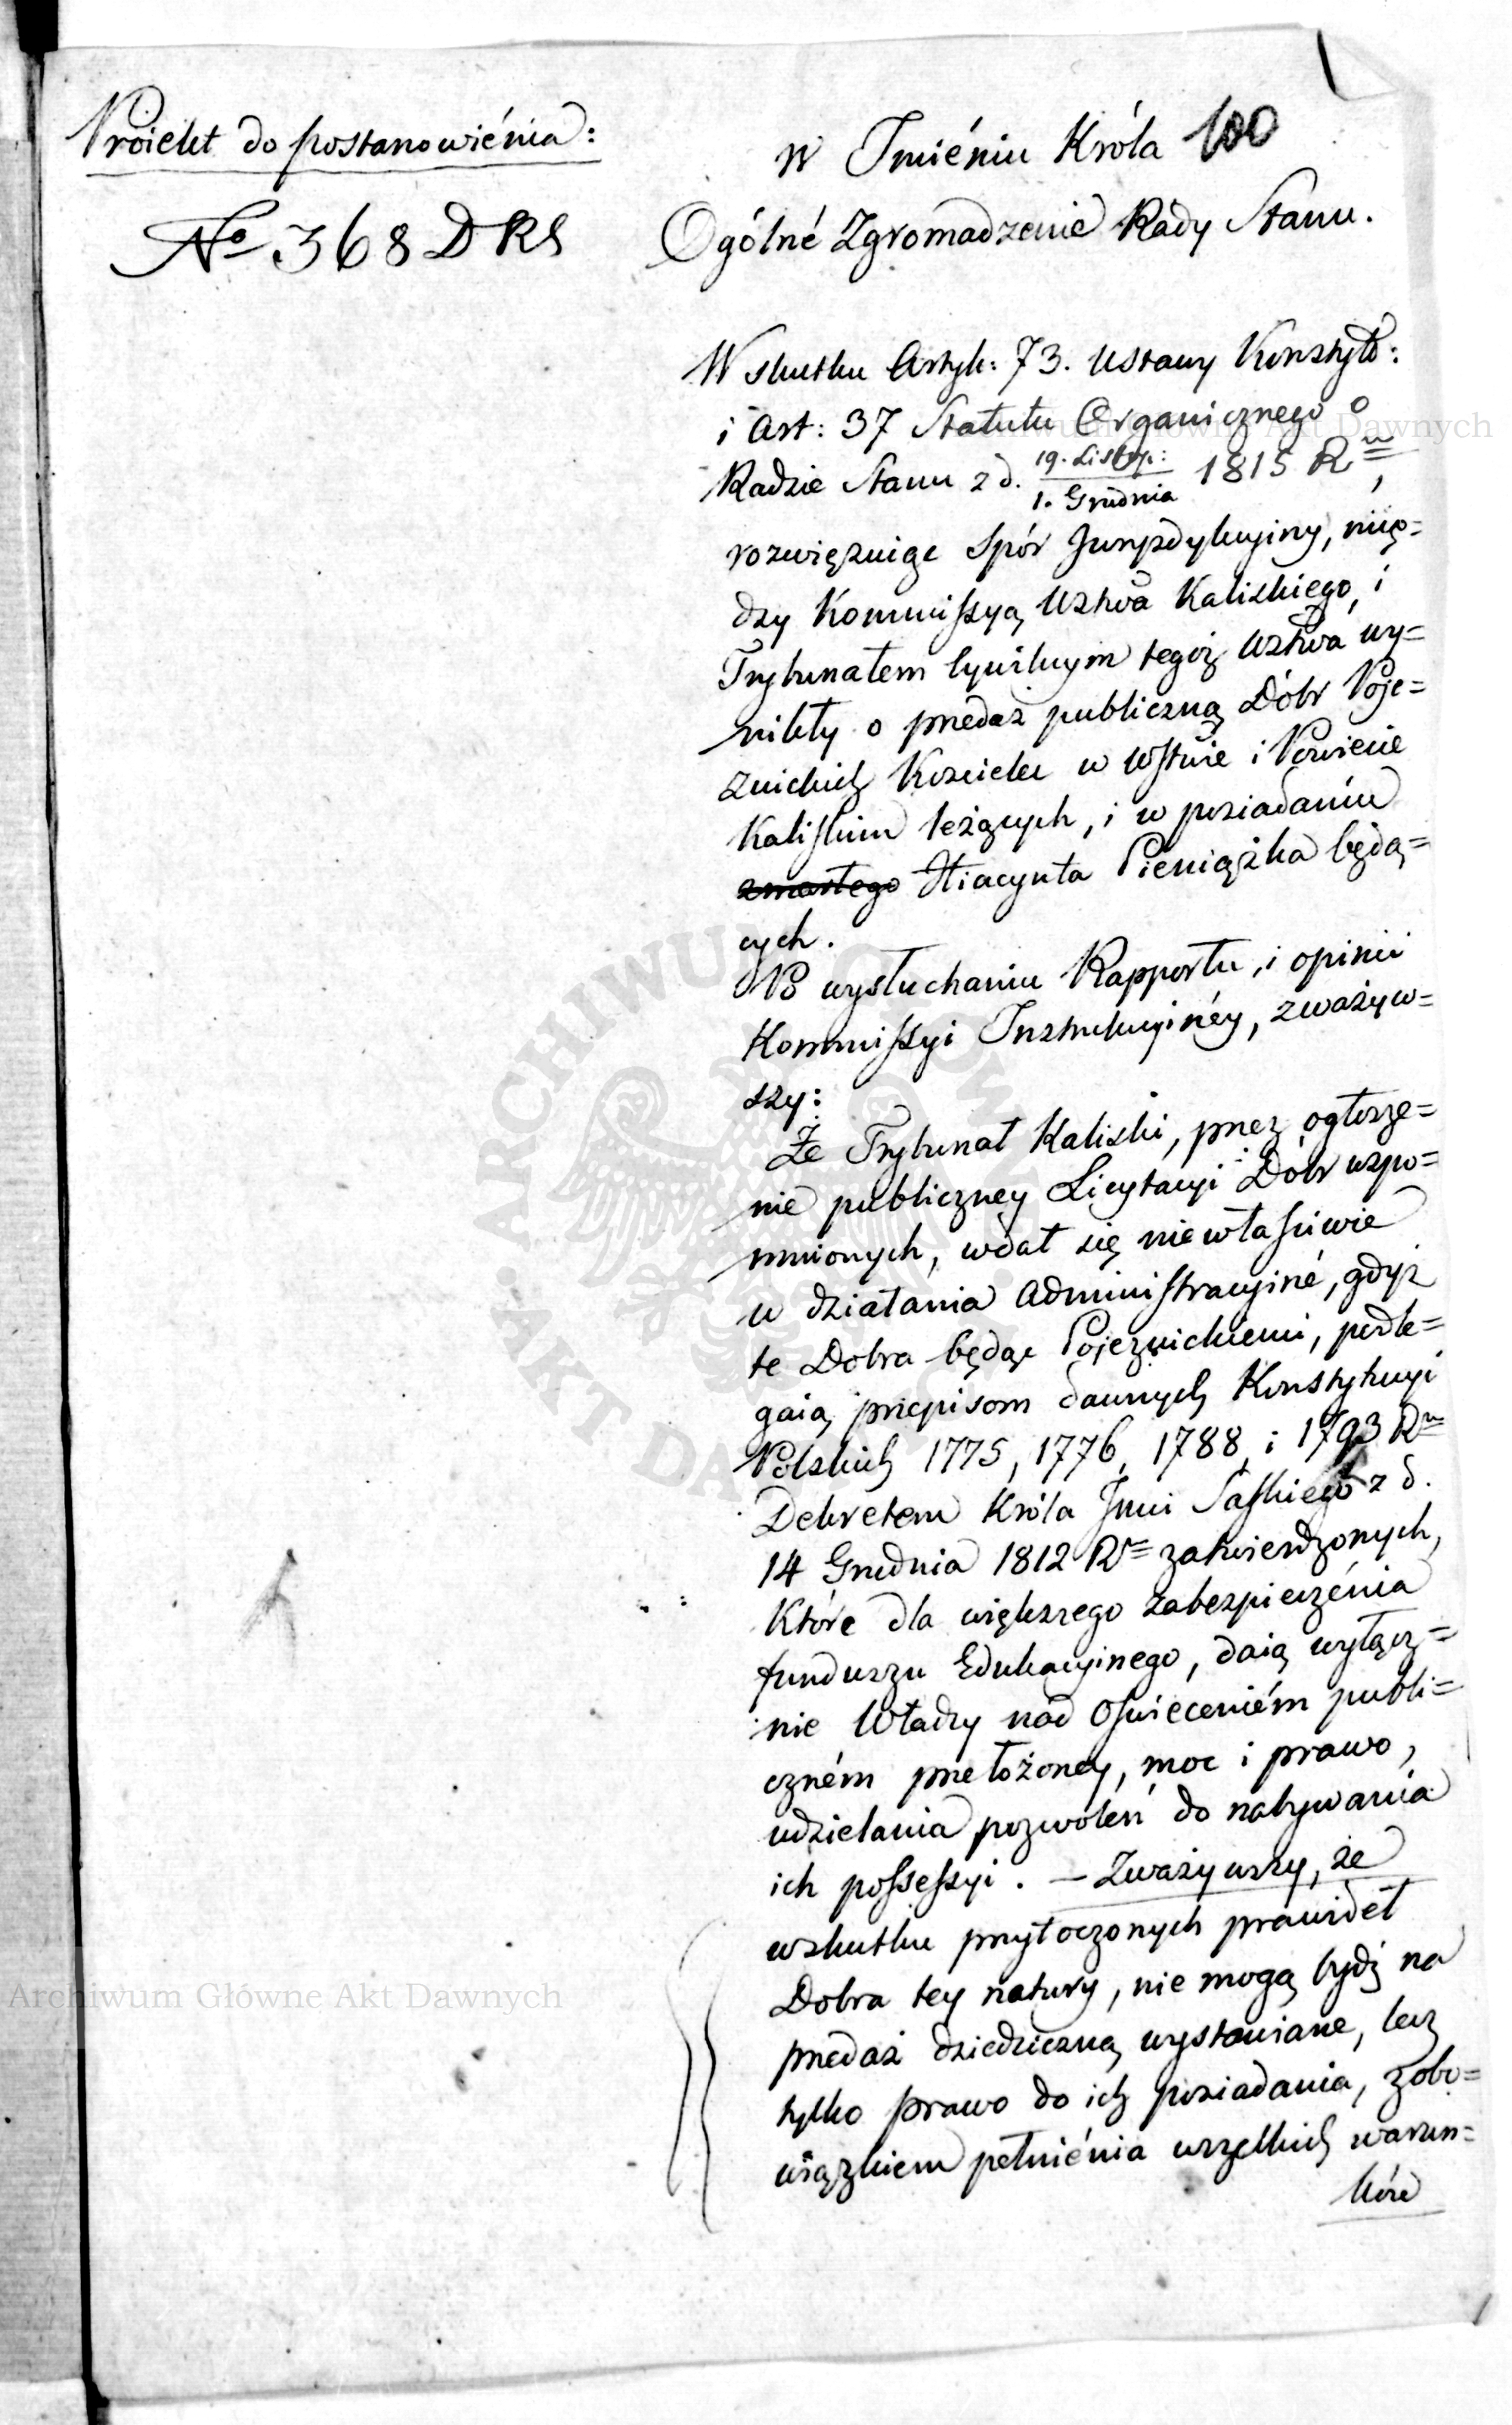 Proiekt do postanowiénia:
No 368 D RS
100
W Jmiéniu Króla
Ogólné Zgromadzenie Rady Stanu.
W skutku Artyk: 73. Ustawy Konstyt:
i Art: 37 Statutu Organicznego o
Radzie Stanu z d. 19. Listop: / 1. Grudnia 1815 Ru,
rozwięzuiąc Spór Juryzdykcyiny, mię=
dzy Kommissyą Wztwa Kaliskiego, i
Trybunałem Cywilnym tegoż Wztwa wy=
nikły o przedaż publiczną Dóbr Poje=
zuickich Kościelec w Wstwie i Powiecie
Kaliskim leżących, i w posiadaniu
zmarłego Hiacynta Pieniążka będą=
cych.
Po wysłuchaniu Rapportu, i opinii
Kommissyi Instrukcyinéy, zważyw=
szy:
Że Trybunał Kaliski, przez ogłosze=
nie publiczney Licytacyi Dóbr wspo=
mnionych, wdał się niewłaściwie
w działania Administracyiné, gdyż
te Dobra będąc Pojezuickiemi, podle=
gaią przepisom dawnych Konstytucyi
Polskich 1775, 1776, 1788, i 1793 Ru
Dekretem Króla Jmci Saskiego z d.
14 Grudnia 1812 Ru zatwierdzonych,
Które dla większego zabezpieczénia
funduszu Edukacyinego, daią wyłącz=
nie Władzy nad Oświeceniém publi=
czném przełożoney, moc i prawo,
udzielania pozwoleń do nabywania
ich possessyi. — Zważywszy, że
wskutku przytoczonych prawideł
Dobra tey natury, nie mogą bydź na
przedaż dziedziczną wystawiane, lecz
tylko prawo do ich posiadania, z obo=
wiązkiem pełniénia wszelkich warun=
ków
Archiwum Główne Akt Dawnych
Archiwum Główne Akt Dawnych